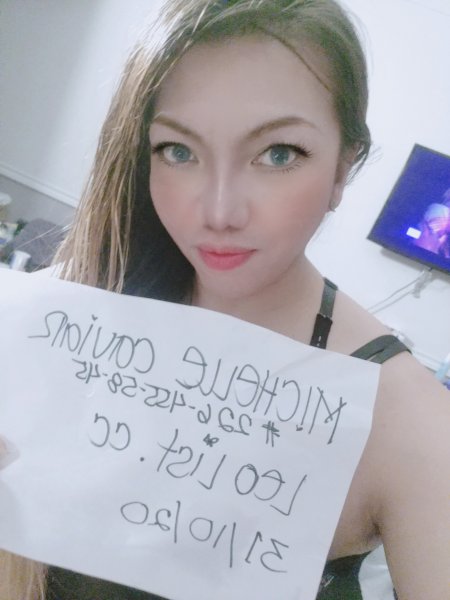 MICHELLE CAVIAR
#226-455-58-45
LEO LIST.CC
31/10/20